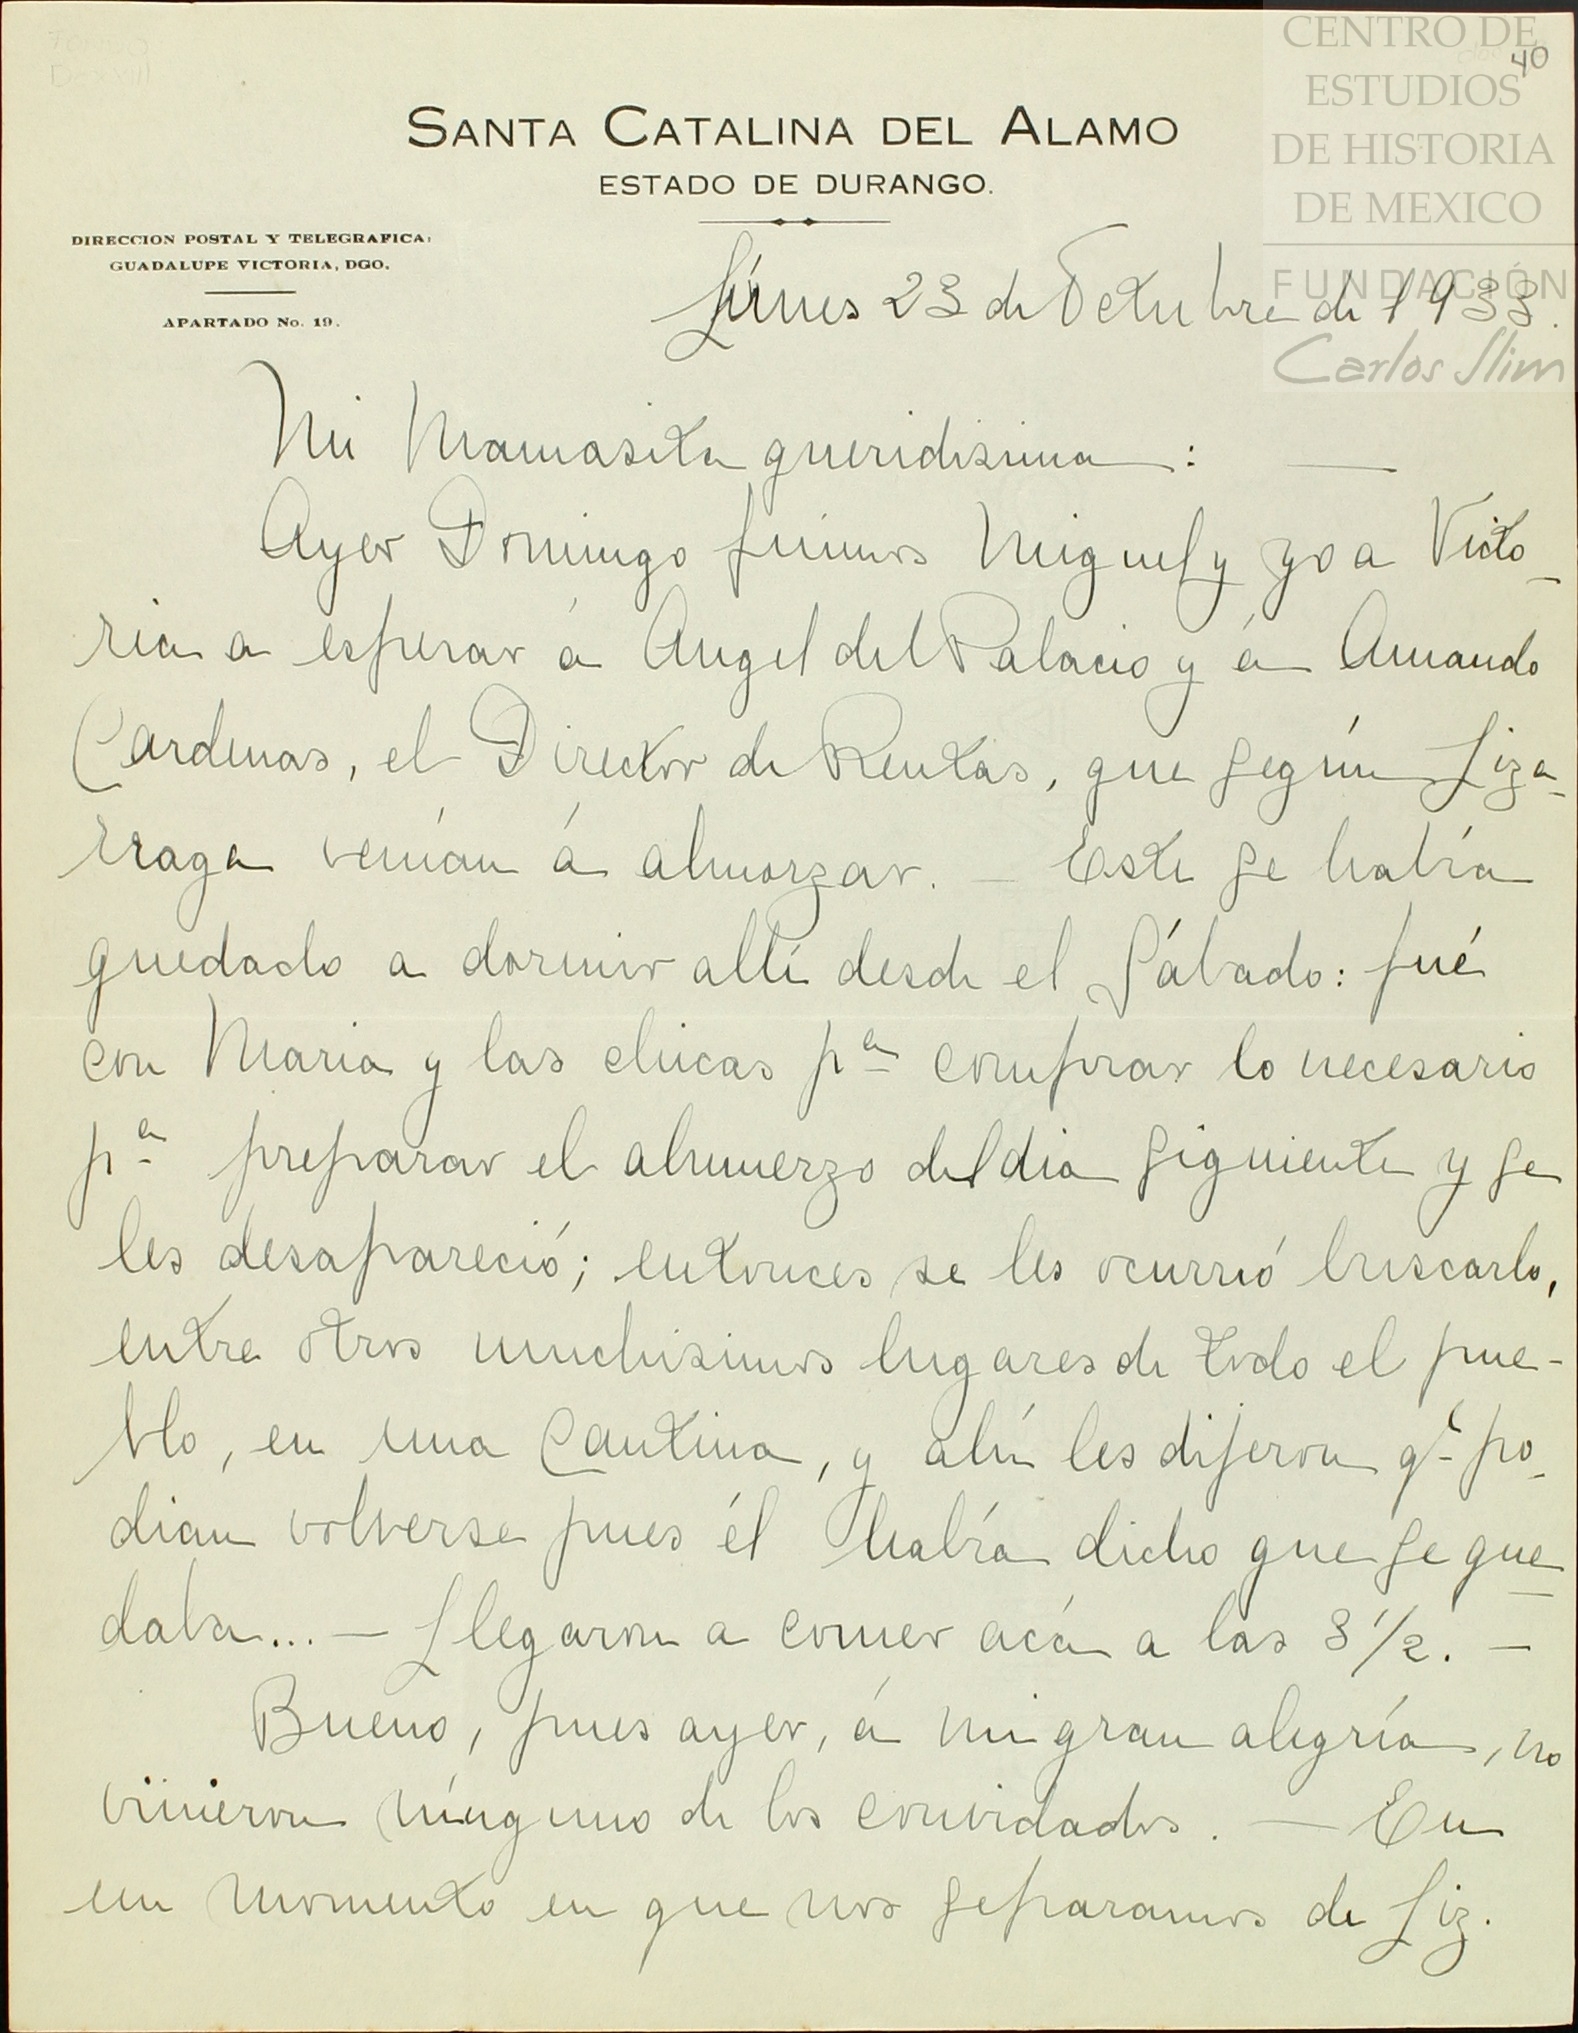 CENTRO DE
ESTUDIOS
DE HISTORIA
DE MEXICO
FUNDACIÓN
Carlos Slim
40
SANTA CATALINA DEL ALAMO
ESTADO DE DURANGO.
DIRECCION POSTAL Y TELEGRAFICA:
GUADALUPE VICTORIA, DGO.
APARTADO No. 19.
Lúnes 23 de Octubre de 1933.
Mi Mamasita queridisima: —
Ayer Domingo fuimos Miguel y yo a Victo-
ria a esperar á Angel del Palacio y á Amando
Cardenas, el Director de Rentas, que según Liza-
rraga venían á almorzar. — Este se había
quedado a dormir allí desde el Sábado: fué
con Maria y las chicas pª comprar lo necesario
pª preparar el almuerzo del dia siguiente y se
les desapareció; entonces se les ocurrió buscarlo,
entre otros muchisimos lugares de todo el pue-
blo, en una Cantina, y ahí les dijeron qe po-
dian volverse pues él había dicho que se que-
daba... — Llegaron a comer acá a las 3 1/2. —
Bueno, pues ayer, á mi gran alegría, no
vinieron ninguno de los convidados. — En
un momento en que nos separamos de Liz.